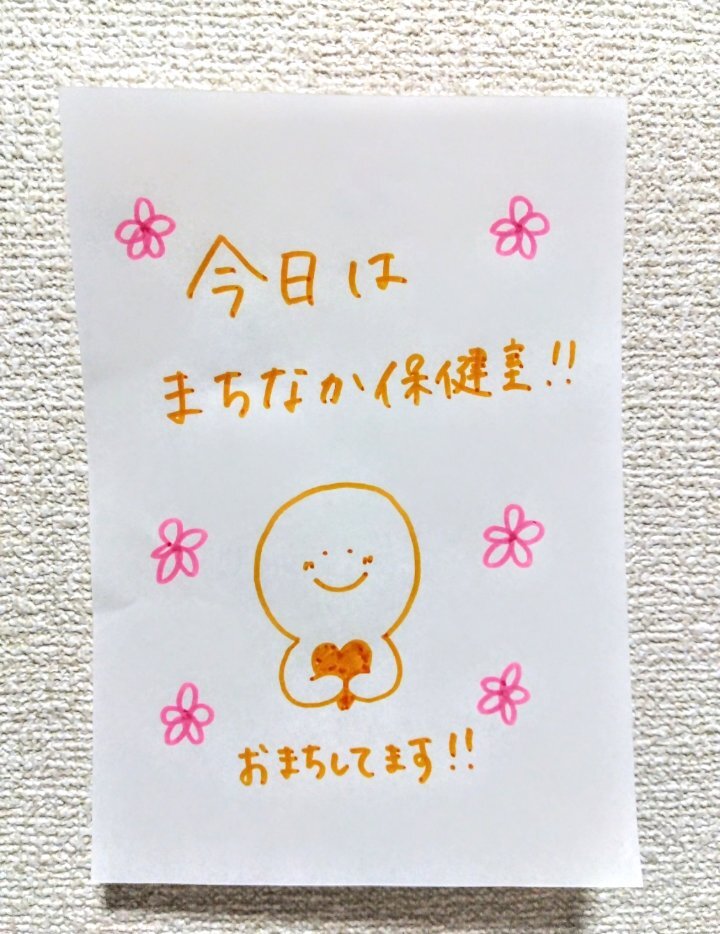 今日は
まちなか保健室!!
おまちしてます!!